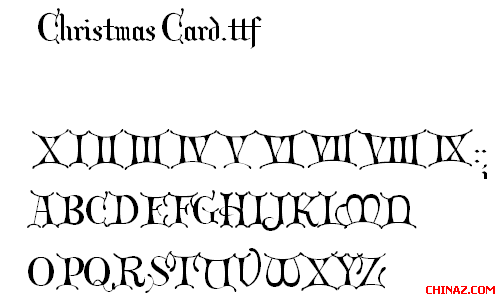 Christmas Card.ttf
X I II III IV V VI VII VIII IX : ;
ABCDEFGHIJKLMN
OPQRSTUVWXYZ
CHINAZ.COM